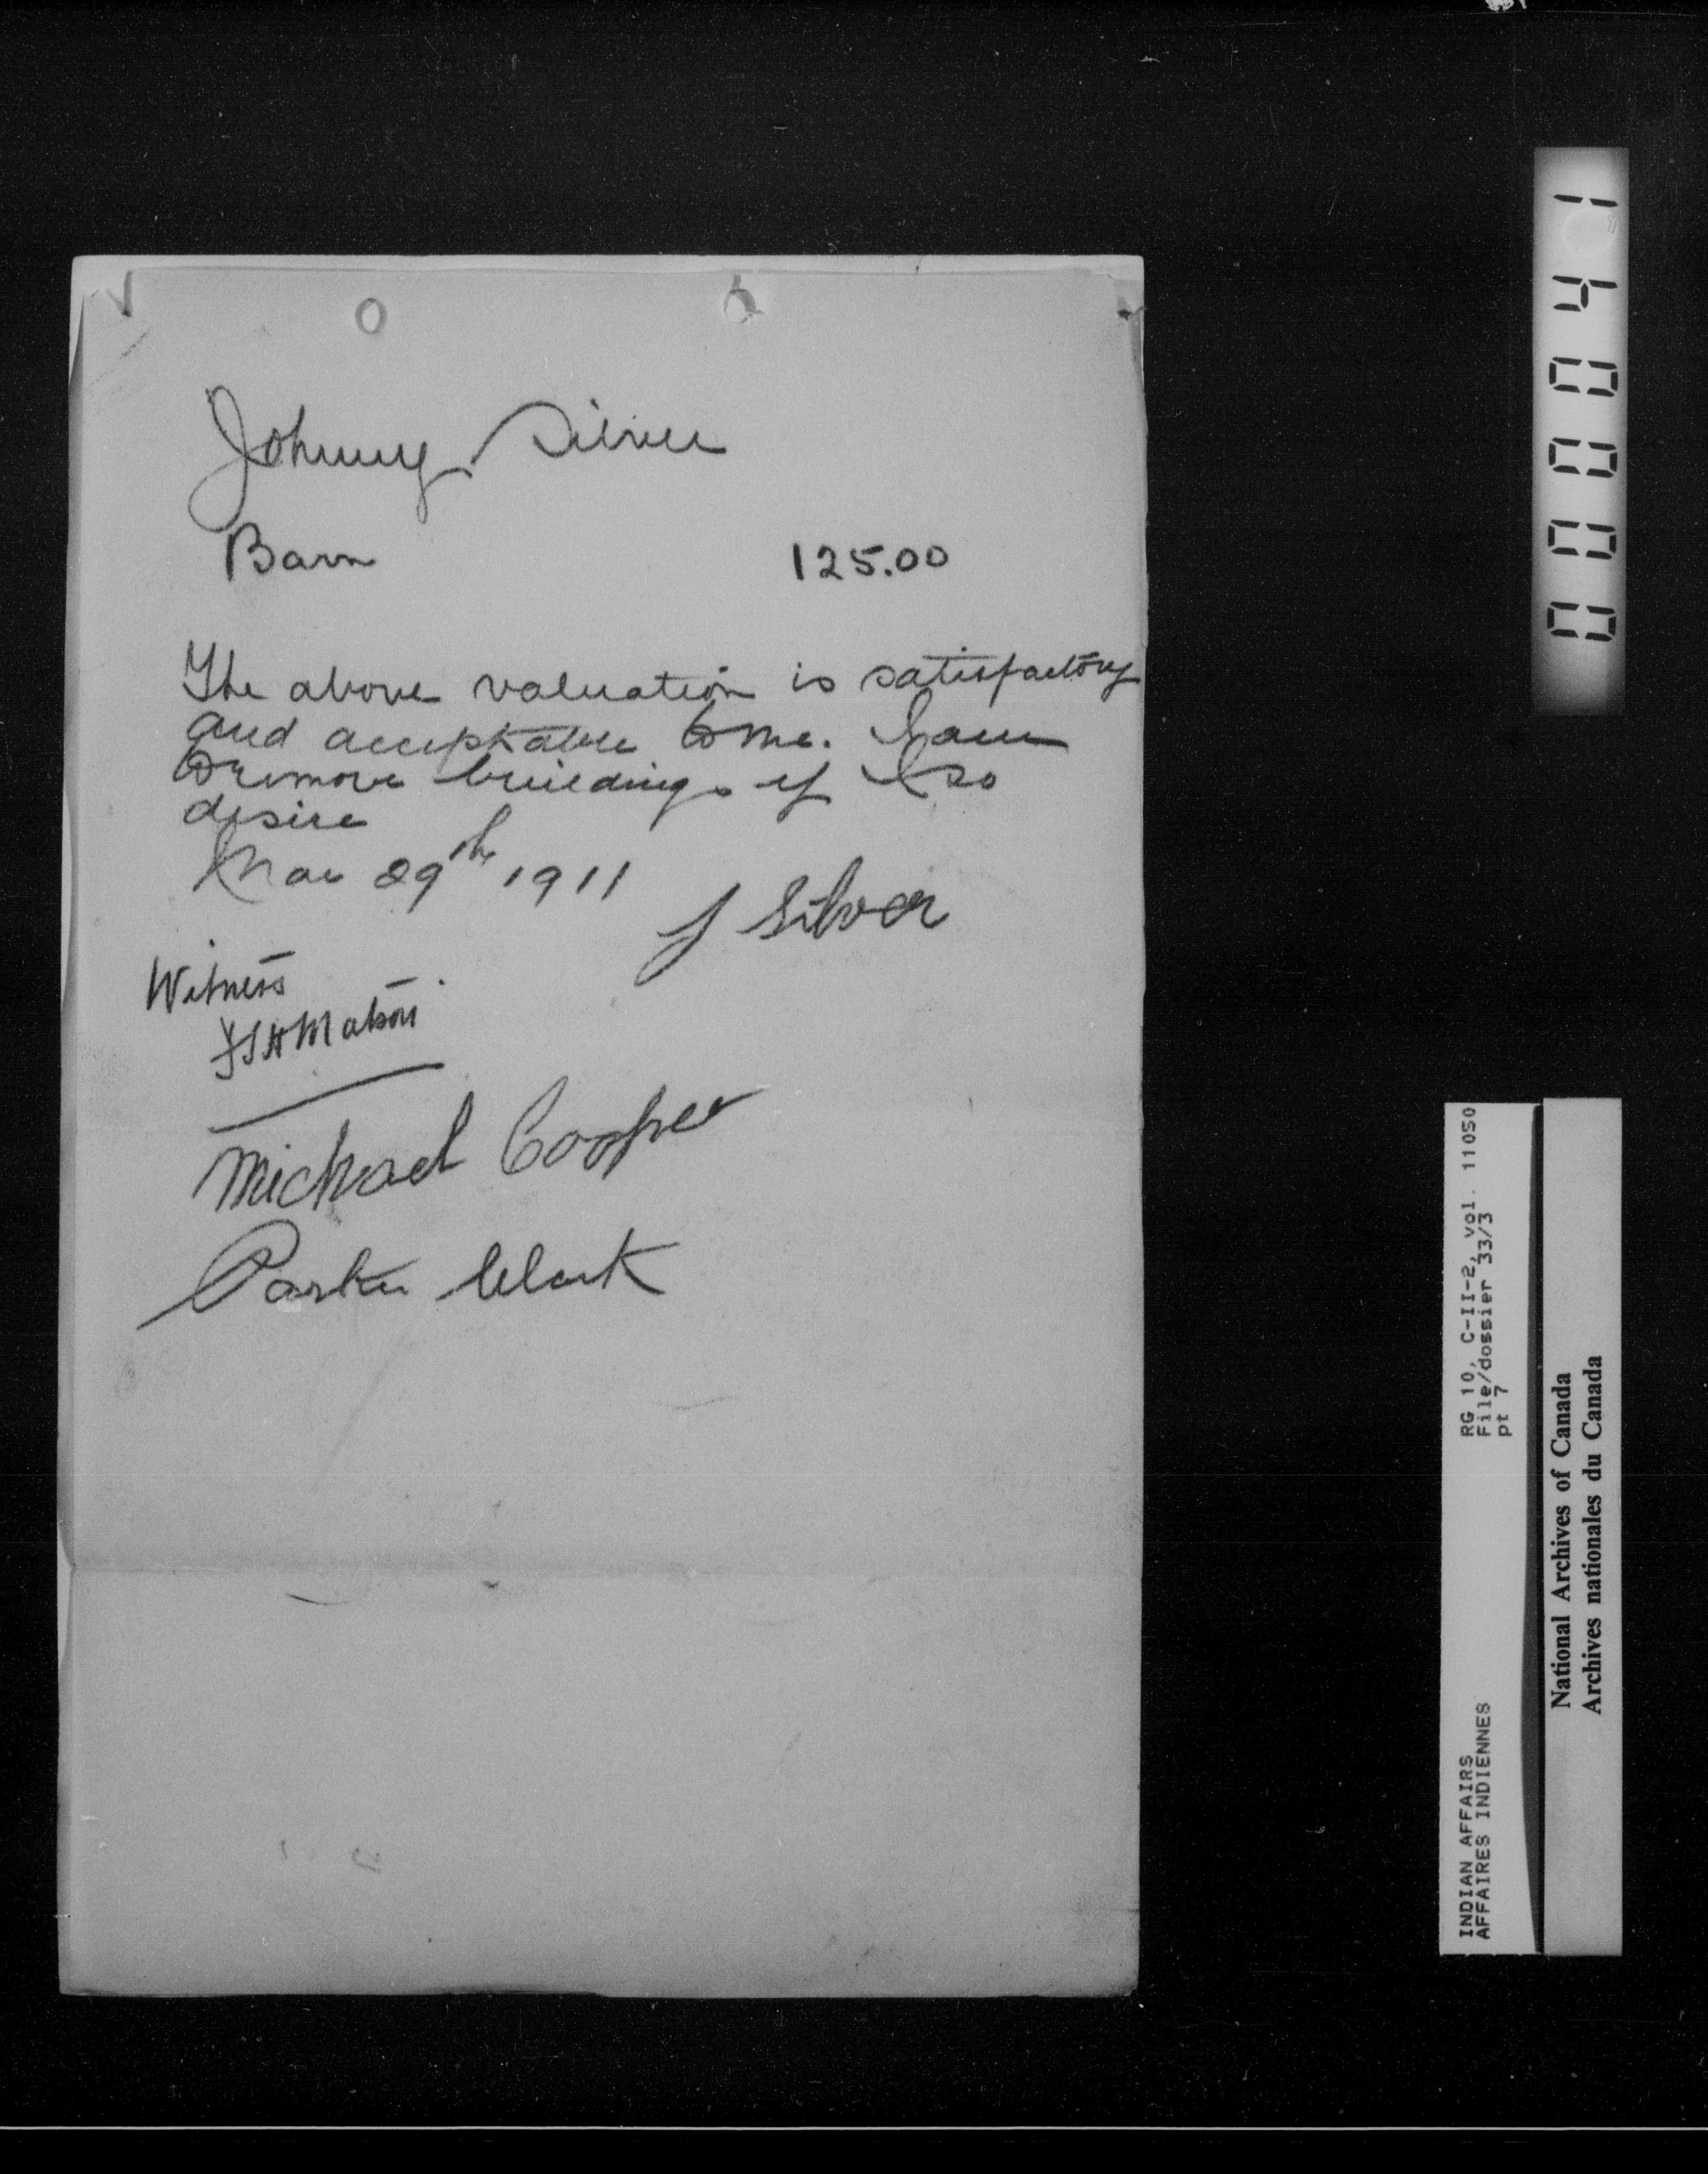 Johnny Silver
Barn 125.00
The above valuation is satisfactory
and acceptable to me. I am
to remove buildings if I so
desire
Mar 29th 1911
J Silver
Witness
JSHMatson
Michael Cooper
Parker Clark
000041
RG 10, C-II-2, vol. 11050
File/dossier 33/3
pt 7
INDIAN AFFAIRS
AFFAIRES INDIENNES
National Archives of Canada
Archives nationales du Canada